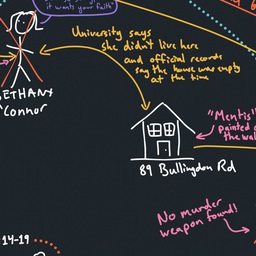 it wants your faith"
University says
she didn't live here
and official records
say the house was empty
at the time
ETHANY
Connor
"Mentis"
painted
the wal
89 Bullingdon Rd
No murder
weapon found!
14-19